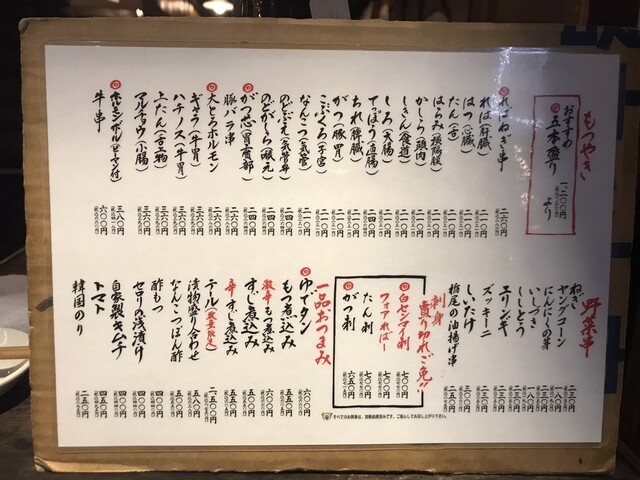 もつやき
おすすめ
五本盛り
一、二〇〇円
より
ればねぎ串 二六〇円
れば(肝臓) 二一〇円
はつ(心臓) 二一〇円
たん(舌) 二一〇円
はらみ(横隔膜) 二一〇円
かしら(頭肉) 二一〇円
しきん(食道) 二一〇円
しろ(大腸) 二一〇円
てっぽう(直腸) 二四〇円
ちれ(脾臓) 二一〇円
がつ(豚胃) 二一〇円
こぶくろ(子宮) 二一〇円
なんこつ(気管) 二一〇円
のどぶえ(気管弁) 二四〇円
のどがしら(喉元) 二四〇円
がつ芯(胃着部) 二四〇円
豚バラ串 二一〇円
大とろホルモン 二六〇円
ギャラ(牛胃) 三六〇円
ハチノス(牛胃) 三六〇円
上たん(舌上物) 三六〇円
マルチョウ(小腸) 三六〇円
ホルモンボール(ピーマン付) 三八〇円
牛串 六〇〇円
野菜串
ねぎ 二三〇円
ヤングコーン 二三〇円
にんにくの芽 一八〇円
いしづき 一八〇円
ししとう 二三〇円
エリンギ 二三〇円
ズッキーニ 二三〇円
しいたけ 二三〇円
栃尾の油揚げ串 二五〇円
刺身
売り切れご免!!
白センマイ刺 七〇〇円
フォアればー 七〇〇円
たん刺 七〇〇円
がつ刺 六五〇円
すべてのお刺身は、加熱処理済みです。ご安心してお召し上がり下さい。
一品おつまみ
ゆでタン 六〇〇円
もつ煮込み 五五〇円
激辛もつ煮込み 六〇〇円
すじ煮込み 五五〇円
辛すじ煮込み 六〇〇円
テール(数量限定) 二、五〇〇円
漬物盛り合わせ 五五〇円
なんこつぽん酢 五〇〇円
酢もつ 四〇〇円
セロリの浅漬け 四〇〇円
自家製キムチ 四〇〇円
トマト 四五〇円
韓国のり 二五〇円